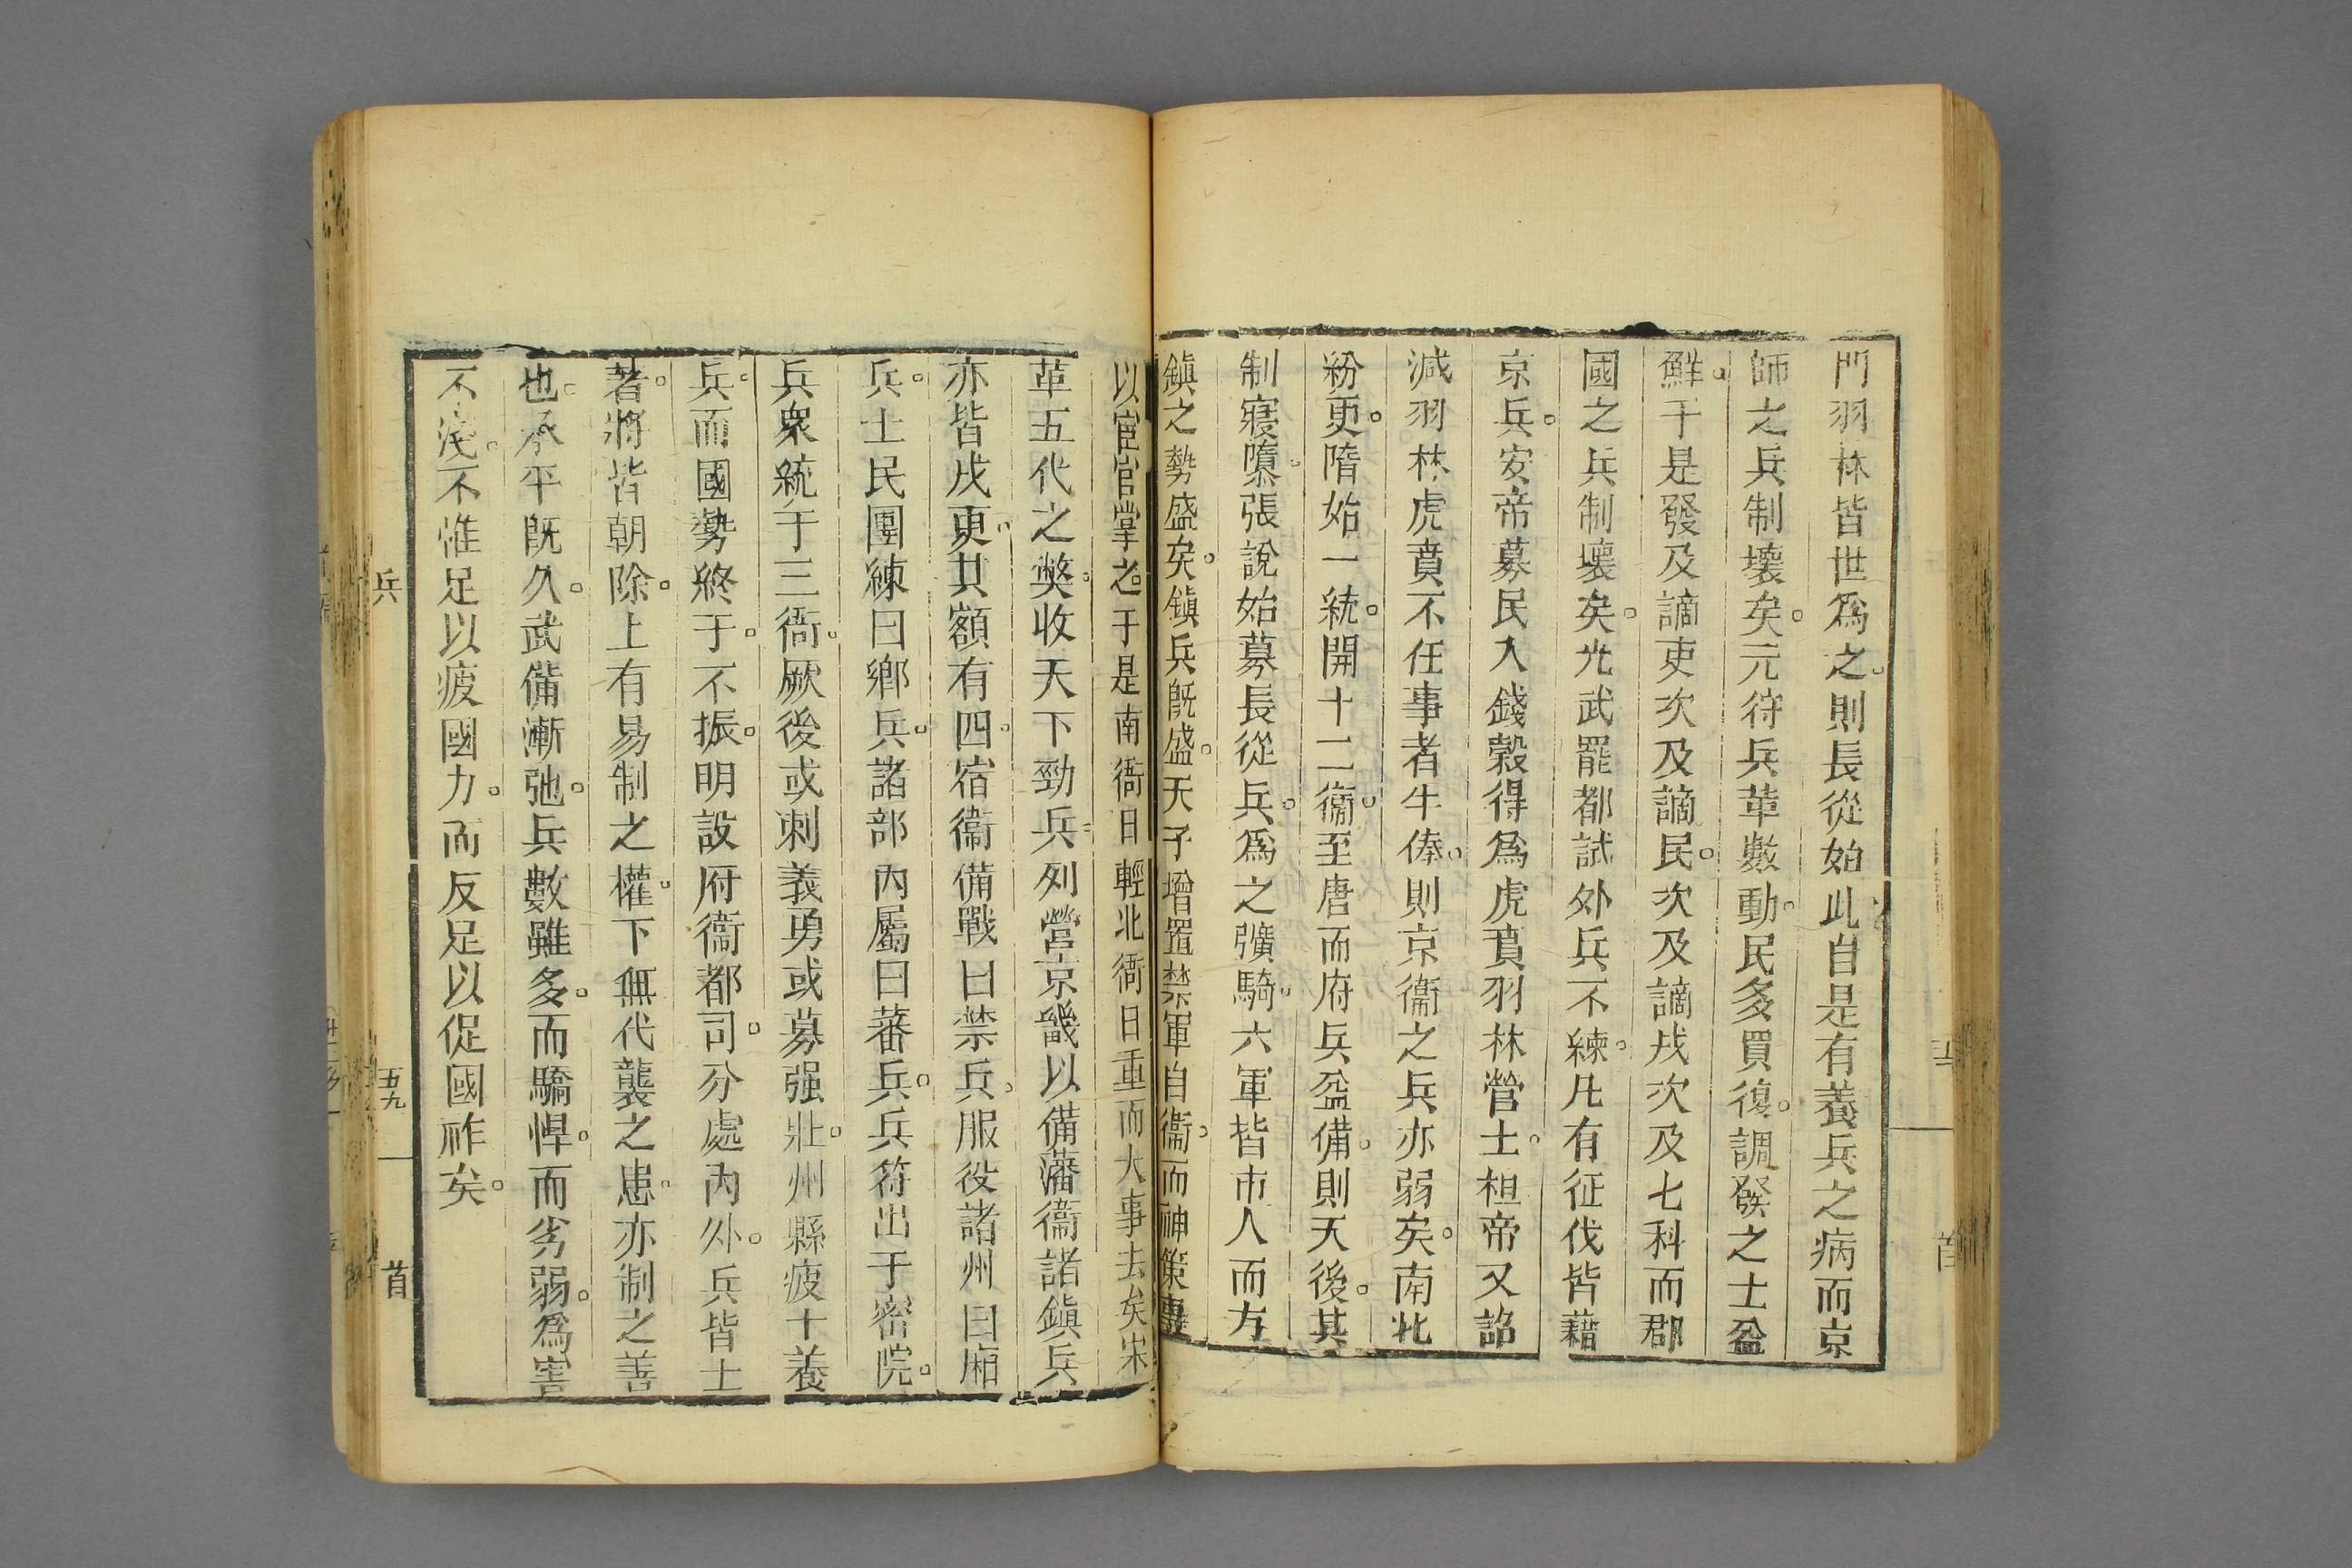 門羽林皆世爲之則長從始此自是有養兵之病而京
師之兵制壞矣元符兵革數動民多買復調發之士益
鮮于是發及謫吏次及謫民次及謫戍次及七科而郡
國之兵制壞矣光武罷都試外兵不練凡有征伐皆藉
京兵安帝募民入錢穀得爲虎賁羽林營士桓帝又詔
減羽林虎賁不任事者牛俸則京衞之兵亦弱矣南北
紛更隋始一統開十二衞至唐而府兵益備則天後其
制寢隳張說始募長從兵爲之彍騎六軍皆市人而方
鎭之勢盛矣鎭兵旣盛天子增置禁軍自衞而神策專
以宦官掌之于是南衙日輕北衙日重而大事去矣宋
革五代之獘收天下勁兵列營京畿以備藩衞諸鎭兵
亦皆戍更其額有四宿衞備戰曰禁兵服役諸州曰廂
兵士民團練曰鄉兵諸部內屬曰蕃兵兵符出于密院
兵衆統于三衙厥後或刺義勇或募强壯州縣疲于養
兵而國勢終于不振明設府衞都司分處內外兵皆土
著將皆朝除上有易制之權下無代襲之患亦制之善
也承平旣久武備漸弛兵數雖多而驕悍而劣弱爲害
不淺不惟足以疲國力而反足以促國祚矣
兵 五九 首